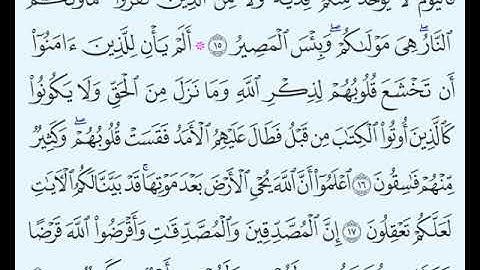 لَا مِنكُمْ فِدْيَةٌ وَلَا مِنَ الَّذِينَ كَفَرُوا
النَّارُ هِيَ مَوْلَىٰكُمْ وَبِئْسَ الْمَصِيرُ ١٥ * أَلَمْ يَأْنِ لِلَّذِينَ ءَامَنُوٓا
أَن تَخْشَعَ قُلُوبُهُمْ لِذِكْرِ اللَّهِ وَمَا نَزَلَ مِنَ الْحَقِّ وَلَا يَكُونُوا
كَالَّذِينَ أُوتُوا الْكِتَٰبَ مِن قَبْلُ فَطَالَ عَلَيْهِمُ الْأَمَدُ فَقَسَتْ قُلُوبُهُمْ وَكَثِيرٌ
مِّنْهُمْ فَٰسِقُونَ ١٦ اعْلَمُوٓا أَنَّ اللَّهَ يُحْيِ الْأَرْضَ بَعْدَ مَوْتِهَا قَدْ بَيَّنَّا لَكُمُ الْآيَٰتِ
لَعَلَّكُمْ تَعْقِلُونَ ١٧ إِنَّ الْمُصَّدِّقِينَ وَالْمُصَّدِّقَٰتِ وَأَقْرَضُوا اللَّهَ قَرْضًا